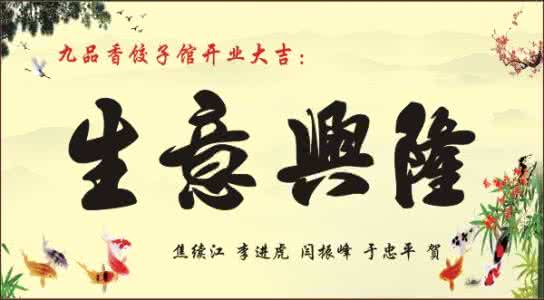 九品香饺子馆开业大吉：
生意興隆
焦续江 李进虎 闫振峰 于忠平 賀